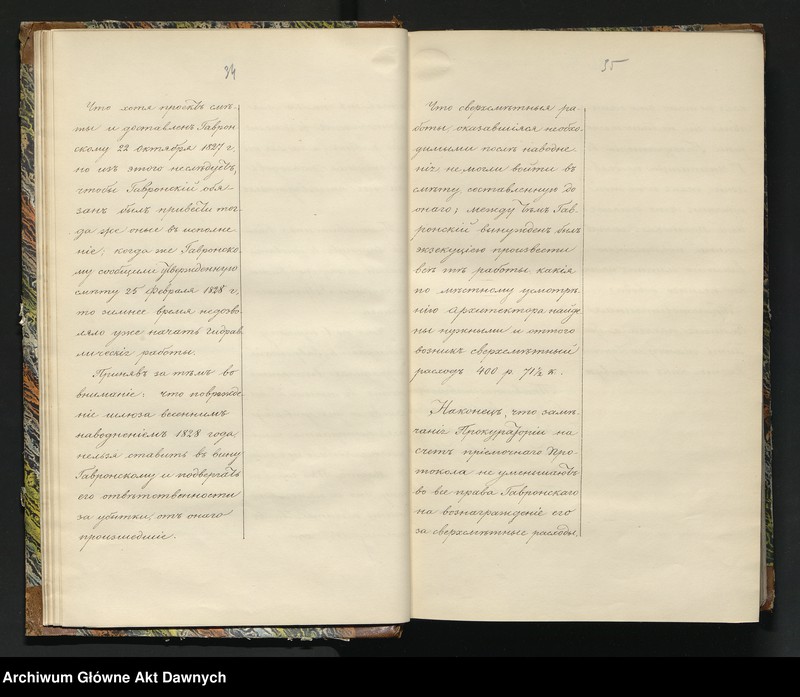 34
Что хотя проектъ смѣ-
ты и доставленъ Гаврон
скому 22 Октября 1827 г.
но изъ этого неслѣдуетъ,
чтобы Гавронскій обя-
занъ былъ привести тог-
да же оные въ исполне
ніе; когда же Гавронско-
му сообщили утвержденную
смѣту 25 февраля 1828 г,
то зимнее время недозво
ляло уже начать гидрав
лическіе работы.
Принявъ за тѣмъ во
вниманіе: что поврежде
ніе шлюза весеннимъ
наводненіемъ 1828 года,
нельзя ставить въ вину
Гавронскому и подвергать
его отвѣтственности
за убытки, отъ онаго
происшедшіе.
35
Что сверхсмѣтныя ра
боты оказавшіяся необхо
димыми послѣ наводне
нія не могли войти въ
смѣту составленную до
онаго; между тѣмъ Гав.
ронскій вынужденъ былъ
экзекуціею произвести
всѣ тѣ работы какія
по мѣстному усмотрѣ
нію архитектора найде
ны нужными и оттого
возникъ сверхсмѣтный
расходъ 400 р. 71½ к.
Наконецъ, что замѣ
чанія Прокураторіи на
счетъ пріемочнаго Про-
токола не уменьшаютъ
во все права Гавронскаго
на вознагражденіе его
за сверхсмѣтные расходы.
Archiwum Główne Akt Dawnych